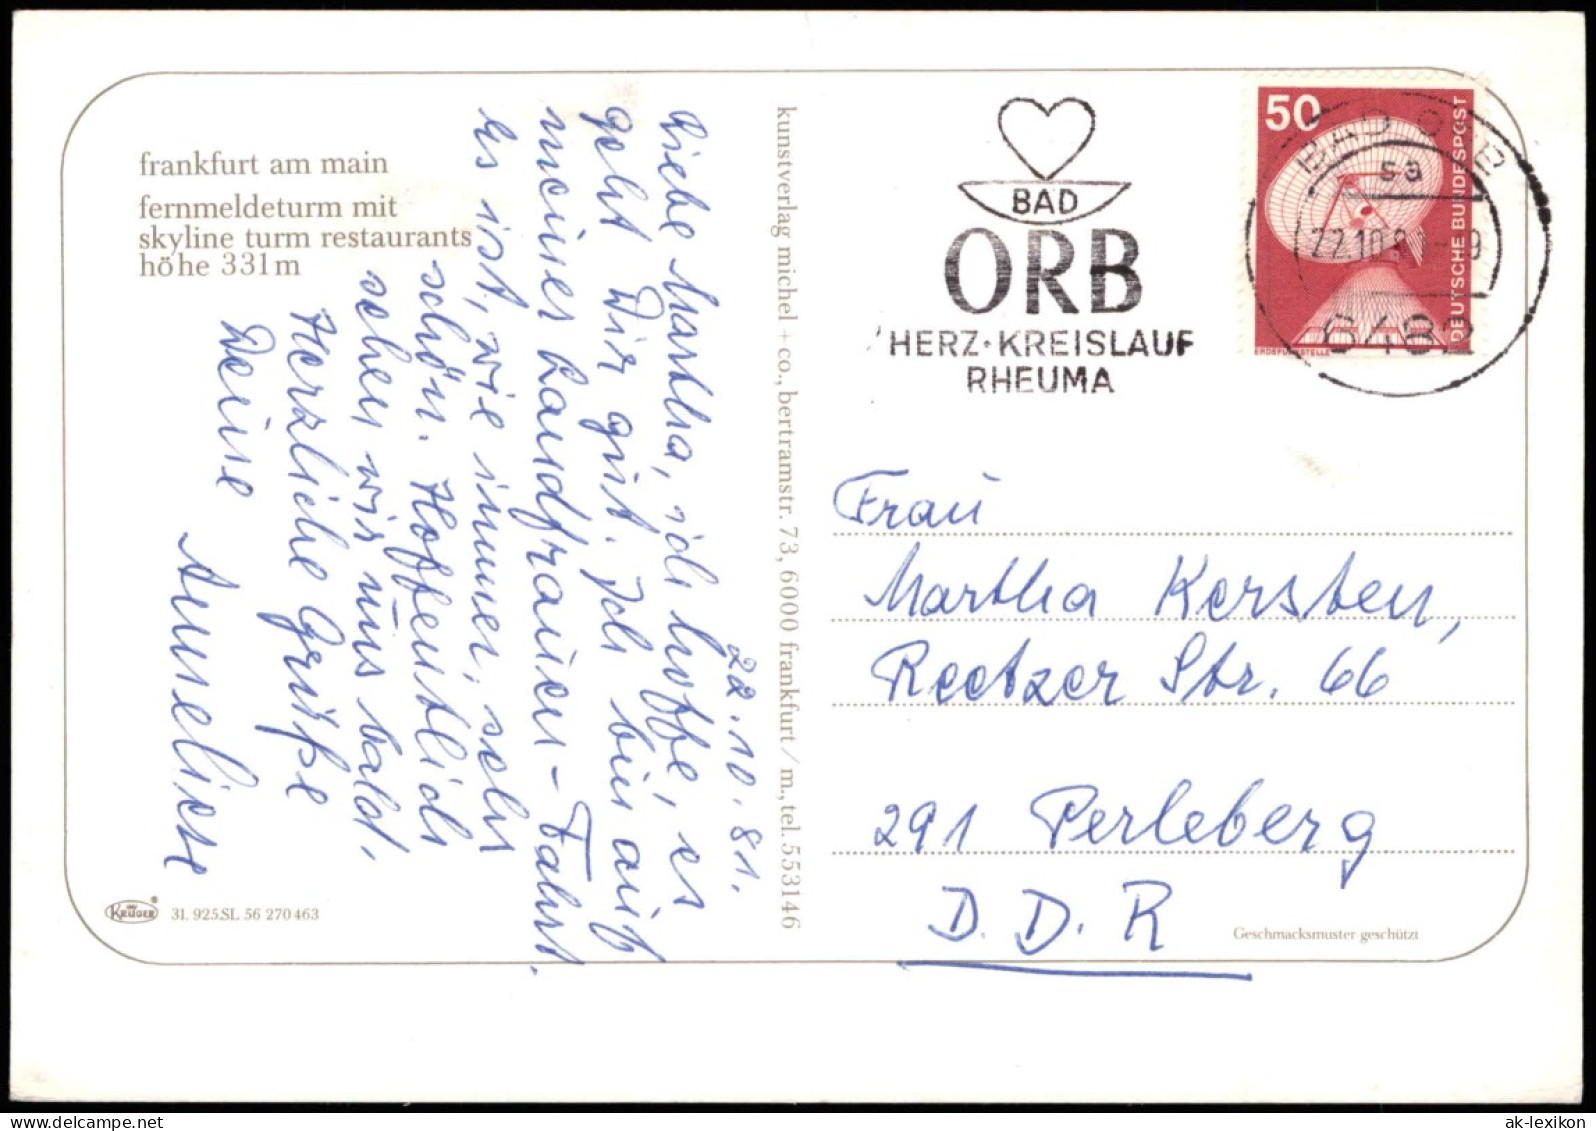 frankfurt am main
fernmeldeturm mit
skyline turm restaurants
höhe 331m
22.10.81.
Liebe Martha, ich hoffe, es
geht Dir gut. Ich bin auf
meiner Landfrauen-Fahrt.
Es ist, wie immer, sehr
schön. Hoffentlich
sehen wir uns bald.
Herzliche Grüße
Deine
Anneliese
KRÜGER
31. 925.SL 56 270463
kunstverlag michel + co., bertramstr. 73, 6000 frankfurt/m., tel. 553146
BAD
ORB
HERZ·KREISLAUF
RHEUMA
50
DEUTSCHE BUNDESPOST
ERDEFUNKSTELLE
BAD ORB
sa
22.10.81
6482
Frau
Martha Kersten,
Reetzer Str. 66
291 Perleberg
D. D. R
Geschmacksmuster geschützt
ak-lexikon